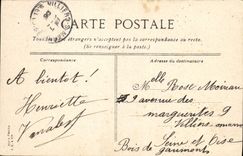 CARTE POSTALE
Tous les pays étrangers n'acceptent pas la correspondance au recto.
(Se renseigner à la poste)
Correspondance
Adresse du destinataire
A bientôt!
Henriette
Melle Rose Moinau
9 avenue des
marguerites 9
Villiers
Seine et Oise
Bois de gaumont